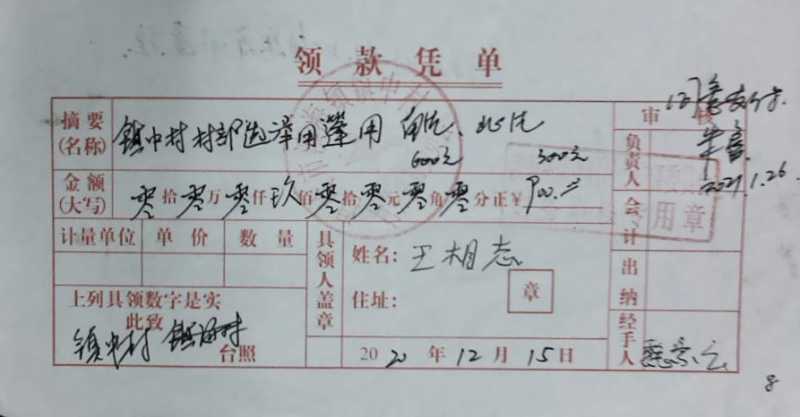 领款凭单
摘要(名称) 镇中村村部选举用篷用
600元 300元
审核
同意支付
2021.1.26
金额(大写) 零拾零万零仟玖佰零拾零元零角零分正¥900.00
负责人
会计
用章
计量单位 单价 数量
具领人盖章
姓名：王相志
住址：
章
出纳
上列具领数字是实
此致
镇中村
台照
2020年12月15日
经手人
8